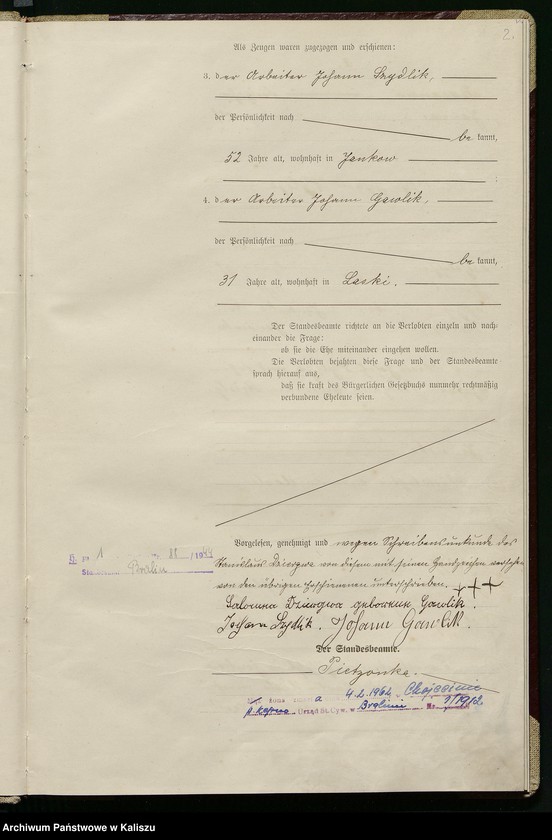 2.
Als Zeugen waren zugezogen und erschienen:
3. der Arbeiter Johann Szydlik,
der Persönlichkeit nach
be kannt,
52 Jahre alt, wohnhaft in Jankow
;
4. der Arbeiter Johann Gawlik,
der Persönlichkeit nach
be kannt,
31 Jahre alt, wohnhaft in Laski.
Der Standesbeamte richtete an die Verlobten einzeln und nach-
einander die Frage:
ob sie die Ehe miteinander eingehen wollen.
Die Verlobten bejahten diese Frage und der Standesbeamte
sprach hierauf aus,
daß sie kraft des Bürgerlichen Gesetzbuchs nunmehr rechtmäßig
verbundene Eheleute seien.
Vorgelesen, genehmigt und wegen Schreibensunkunde des
Stanislaus von diesem mit seinem Handzeichen versehen
von den übrigen Erschienenen unterschrieben. +++
Salomea geborene Gawlik.
Johann Szydlik. Johann Gawlik.
Der Standesbeamte.
Pietzonka.
1 /19
Bralin
a 4.2.1964
Urząd St. Cyw. w Bralinie Nr. 1/1912
Archiwum Państwowe w Kaliszu